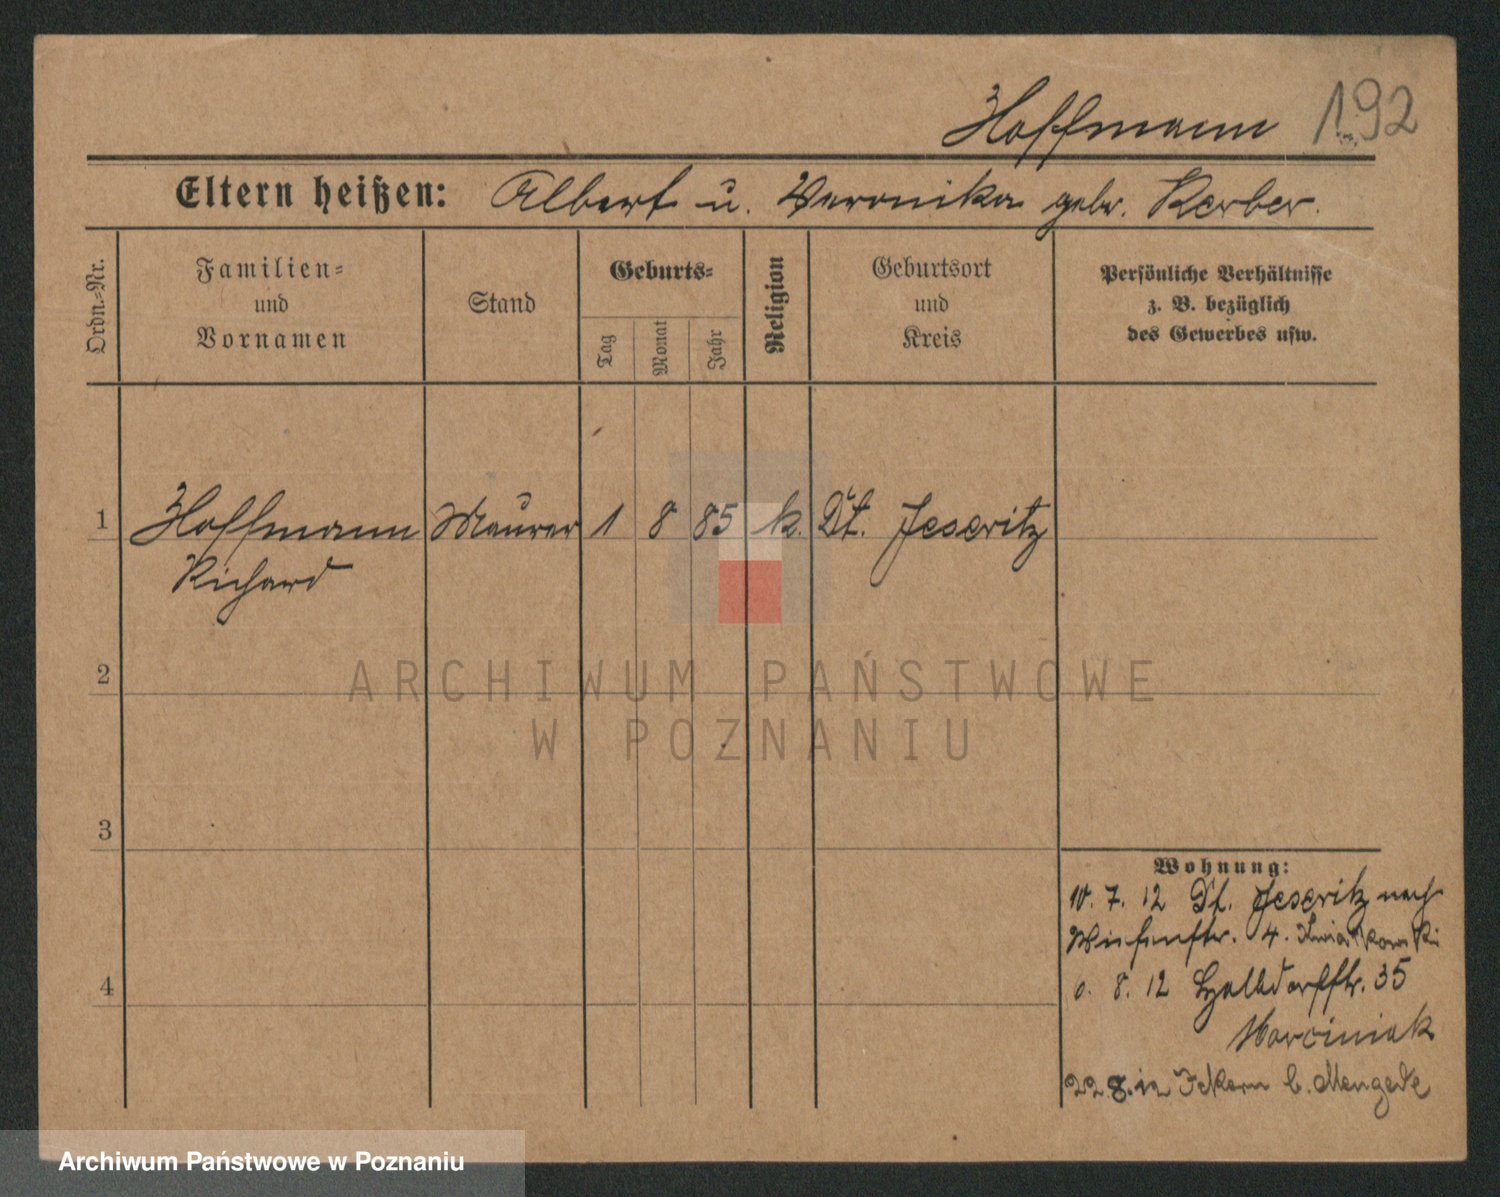 Hoffmann 192
Eltern heißen: Albert u. Veronika geb. Kerber.
Ordn.-Nr.
Familien-
und
Vornamen
Stand
Geburts-
Tag
Monat
Jahr
Religion
Geburtsort
und
Kreis
Persönliche Verhältnisse
z. B. bezüglich
des Gewerbes usw.
1 Hoffmann Maurer 1 8 85 k. Dt. Jeseritz
Richard
2
3
4
Wohnung:
10. 7. 12 Dt. Jeseritz nach
Wiesenstr. 4. Kwiatkowski
8. 12 Halldorfstr. 35
Marciniak
22.8.12 Ickern b. Mengede
ARCHIWUM PAŃSTWOWE
W POZNANIU
Archiwum Państwowe w Poznaniu